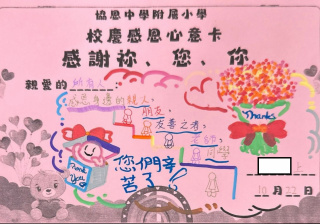 協恩中學附屬小學
校慶感恩心意卡
感謝祢、您、你
親愛的
感恩身邊的親人,
朋友,
友善之者,
老師,
同學
Thanks
Thank
You
您們辛
苦了!
上
10月22日